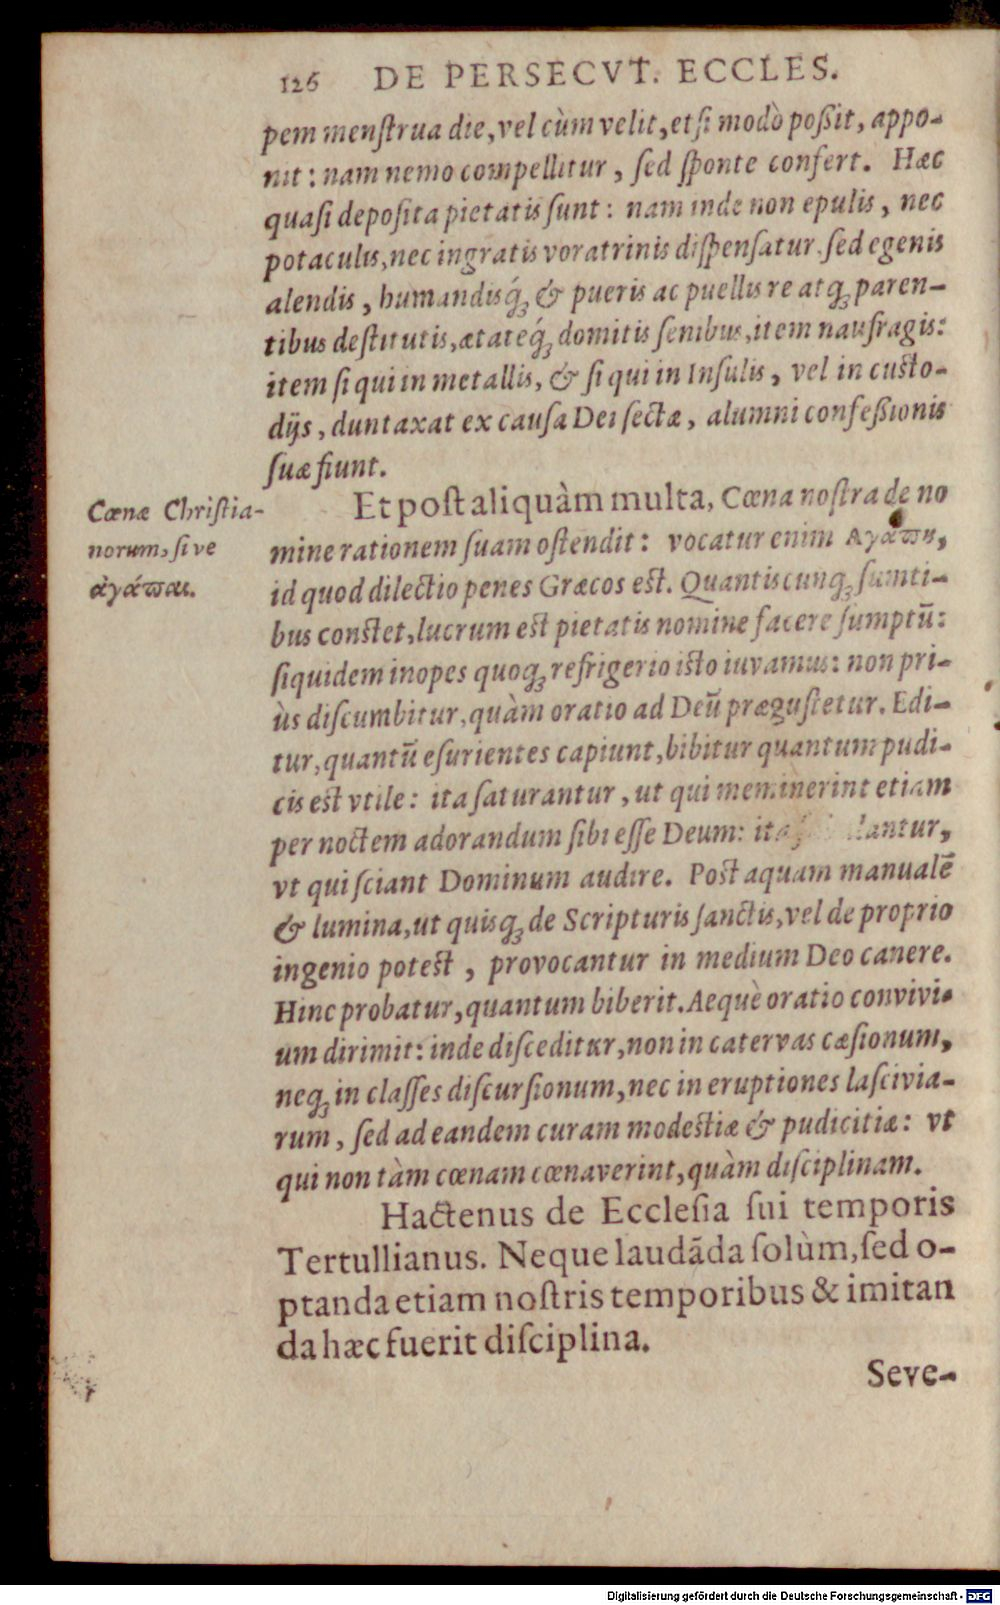 126 DE PERSECVT. ECCLES.
pem menſtrua die, vel cùm velit, et ſi modò poßit, appo-
nit: nam nemo compellitur, ſed ſponte confert. Hæc
quaſi depoſita pietatis ſunt: nam inde non epulis, nec
potaculis, nec ingratis voratrinis diſpenſatur, ſed egenis
alendis, humandisq́ꝫ & pueris ac puellis re atqꝫ paren-
tibus deſtitutis, ætateq́ꝫ domitis ſenibus, item naufragis:
item ſi qui in metallis, & ſi qui in Inſulis, vel in cuſto-
dijs, duntaxat ex cauſa Dei ſectæ, alumni confeßionis
ſuæ fiunt.
Et poſt aliquàm multa, Cœna noſtra de no
mine rationem ſuam oſtendit: vocatur enim Αγάϖη,
id quod dilectio penes Græcos eſt. Quantiscunqꝫ ſumti-
bus conſtet, lucrum eſt pietatis nomine facere ſumptū:
ſiquidem inopes quoqꝫ refrigerio iſto iuvamus: non pri-
ùs diſcumbitur, quàm oratio ad Deū præguſtetur. Edi-
tur, quantū eſurientes capiunt, bibitur quantum pudi-
cis eſt vtile: ita ſaturantur, ut qui meminerint etiam
per noctem adorandum ſibi eſſe Deum: ita lantur,
vt qui ſciant Dominum audire. Poſt aquam manualē
& lumina, ut quisqꝫ de Scripturis ſanctis, vel de proprio
ingenio poteſt, provocantur in medium Deo canere.
Hinc probatur, quantum biberit. Aequè oratio convivi-
um dirimit: inde diſceditur, non in catervas cæſionum,
neqꝫ in claſſes diſcurſionum, nec in eruptiones laſcivia-
rum, ſed ad eandem curam modeſtiæ & pudicitiæ: vt
qui non tàm cœnam cœnaverint, quàm diſciplinam.
Hactenus de Eccleſia ſui temporis
Tertullianus. Neque laudāda ſolùm, ſed o-
ptanda etiam noſtris temporibus & imitan
da hæc fuerit diſciplina.
Seve-
Cœnæ Chriſtia-
norum, ſive
ἀγάϖαι.
Digitalisierung gefördert durch die Deutsche Forschungsgemeinschaft - DFG